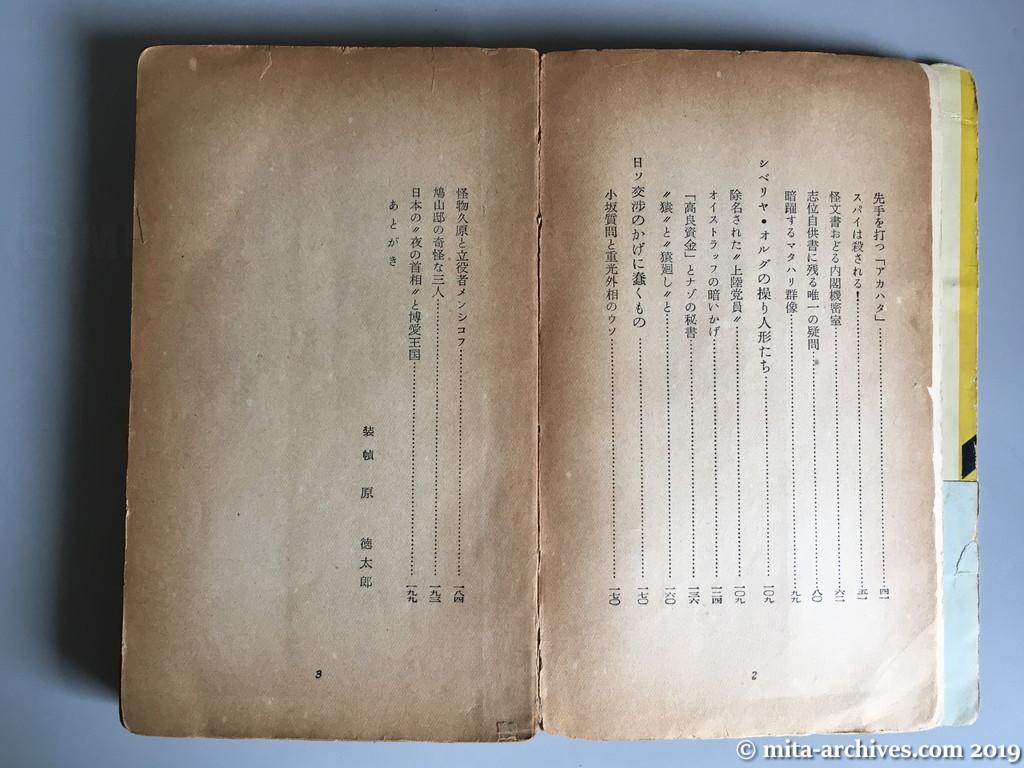 先手を打つ「アカハタ」……四一
スパイは殺される!……五一
怪文書おどる内閣機密室……六二
志位自供書に残る唯一の疑問……八〇
暗躍するマタハリ群像……九九
シベリヤ・オルグの操り人形たち……一〇九
除名された〝上陸党員〟……一〇九
オイストラッフの暗いかげ……一二四
「高良資金」とナゾの秘書……一三六
〝猿〟と〝猿廻し〟と……一六〇
日ソ交渉のかげに蠢くもの……一七〇
小坂質問と重光外相のウソ……一七〇
2
怪物久原と立役者メンシコフ……一八四
鳩山邸の奇怪な三人……一九三
日本の〝夜の首相〟と博愛王国……一九九
あとがき
装幀 原 徳太郎
3
© mita-archives.com 2019